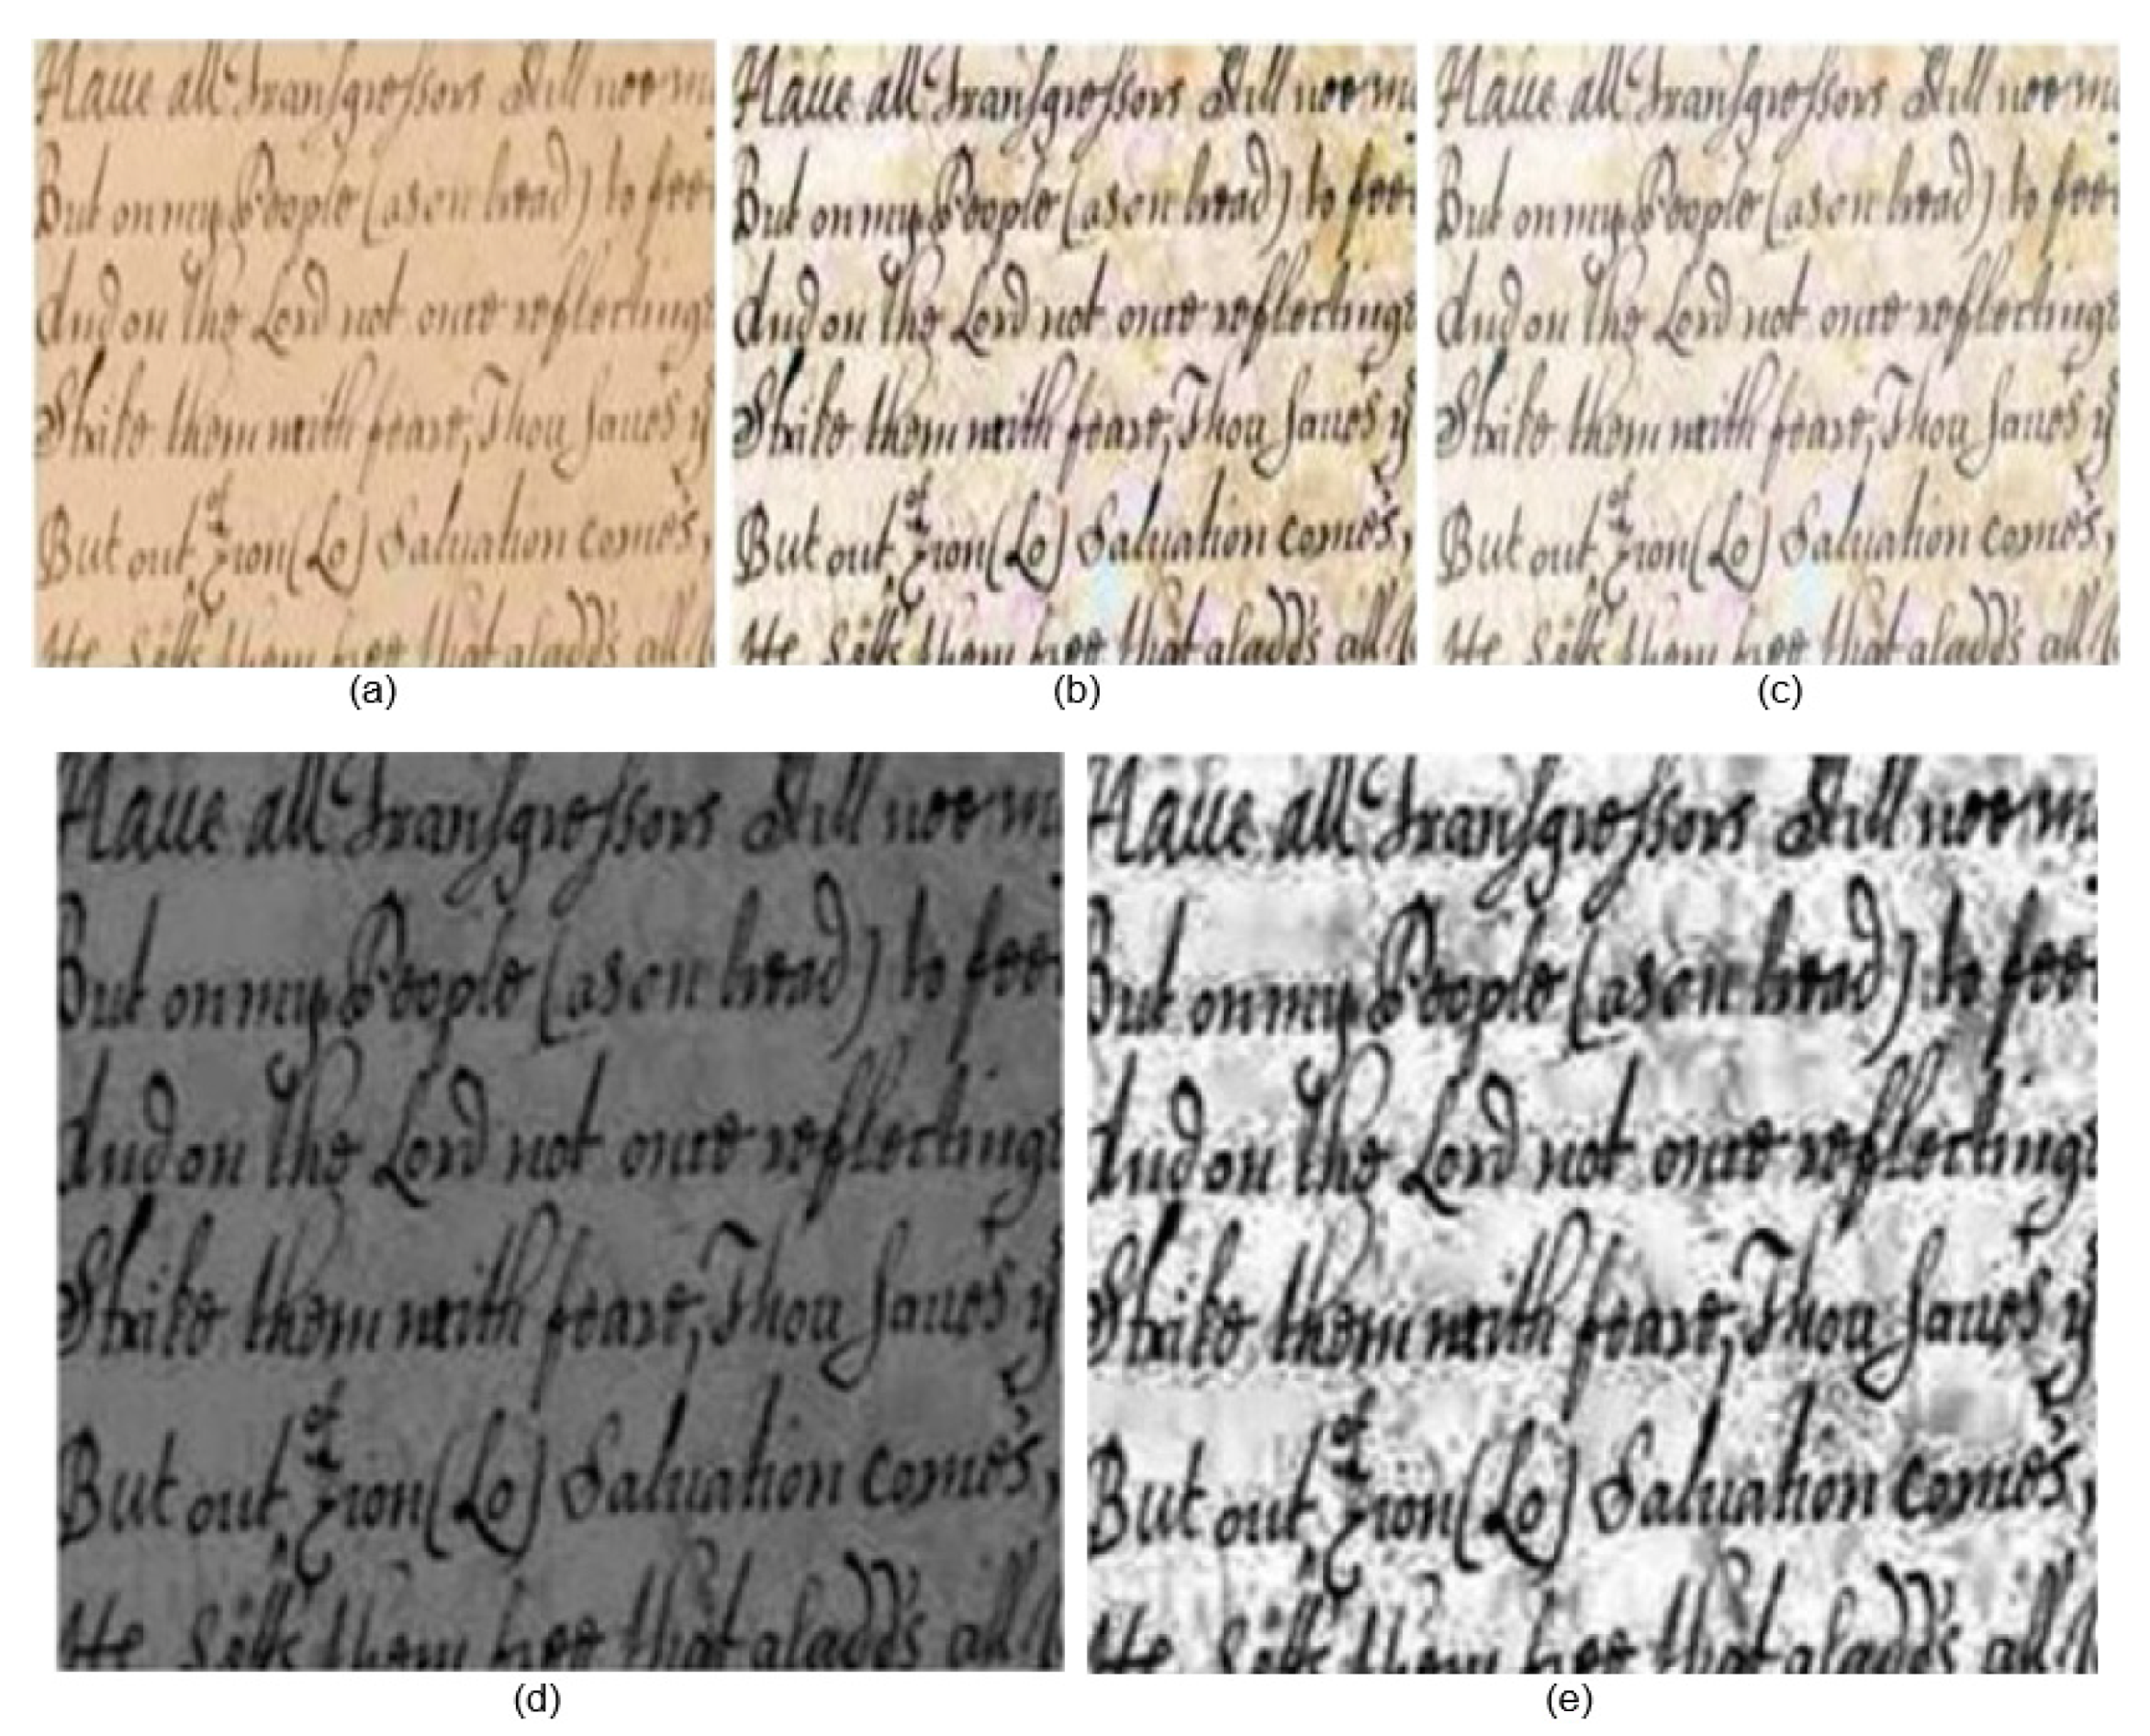 Haue all Tranſgreſſors Still noe
But on my People (as on bread) to
And on the Lord not once reflecting
Strike them with feare, Thou ſaues
But out of Zion (Lo) Saluation comes,
He them that all
(a)
Haue all Tranſgreſſors Still noe
But on my People (as on bread) to
And on the Lord not once reflecting
Strike them with feare, Thou ſaues
But out of Zion (Lo) Saluation comes,
He them that all
(b)
Haue all Tranſgreſſors Still noe
But on my People (as on bread) to
And on the Lord not once reflecting
Strike them with feare, Thou ſaues
But out of Zion (Lo) Saluation comes,
He them that all
(c)
Haue all Tranſgreſſors Still noe
But on my People (as on bread) to
And on the Lord not once reflecting
Strike them with feare, Thou ſaues
But out of Zion (Lo) Saluation comes,
He them that all
(d)
Haue all Tranſgreſſors Still noe
But on my People (as on bread) to
And on the Lord not once reflecting
Strike them with feare, Thou ſaues
But out of Zion (Lo) Saluation comes,
He them that all
(e)